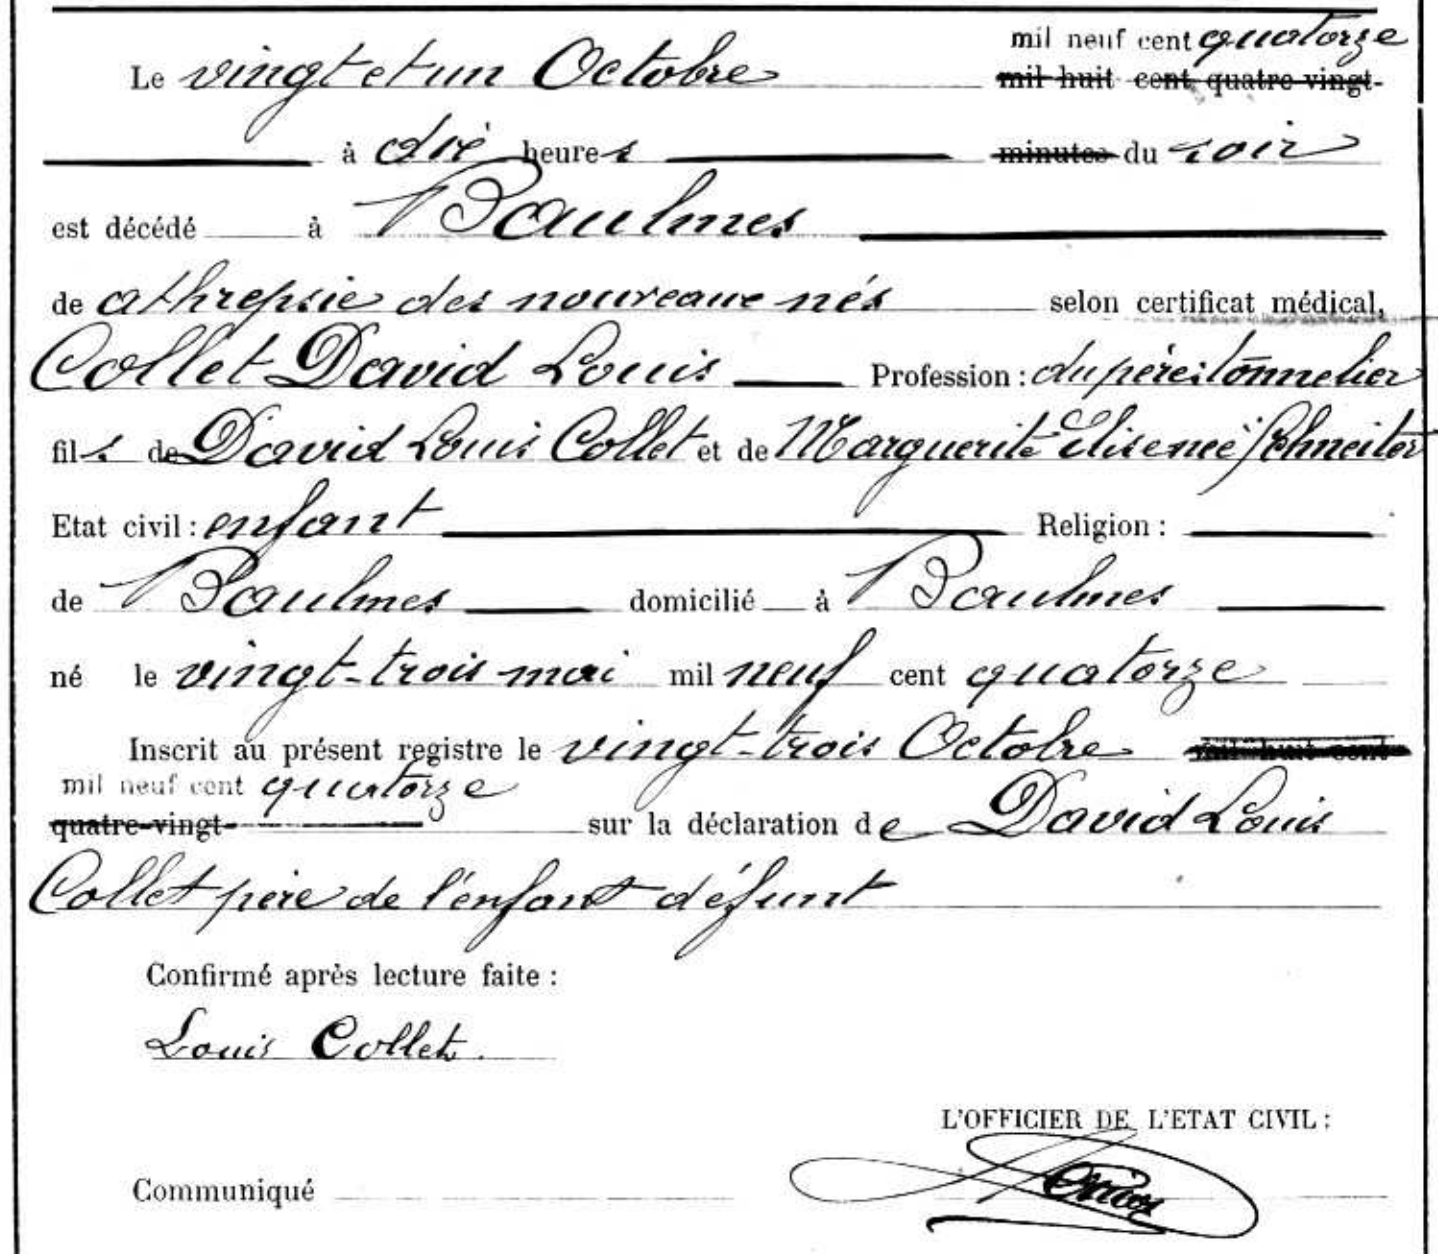 mil neuf cent quatorze
Le vingt et un Octobre mil huit cent quatre-vingt-
à dix heures minutes du soir
est décédé à Baulmes
de athrepsie des nouveaux nés selon certificat médical,
Collet David Louis Profession : du père: tonnelier
fils de David Louis Collet et de Marguerite Elise neé Schneiter
Etat civil : enfant Religion :
de Baulmes domicilié à Baulmes
né le vingt-trois mai mil neuf cent quatorze
Inscrit au présent registre le vingt-trois Octobre mil huit cent
mil neuf cent quatorze
quatre-vingt- sur la déclaration de David Louis
Collet père de l'enfant défunt
Confirmé après lecture faite :
Louis Collet.
L'OFFICIER DE L'ETAT CIVIL :
Communiqué